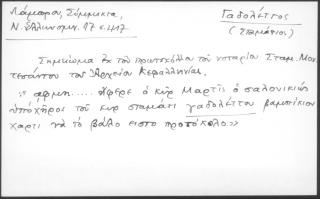 Λάμπρου, Σύμμικτα,
Ν. Ἑλληνομν. 17 σ. 217
Γαδολέττος
(Σταμάτιος)
Σημείωμα ἐκ τοῦ πρωτοκόλλου τοῦ νοταρίου Σταμ. Μον-
τεσάντου τοῦ Ἀρχείου Κεφαλληνίας.
αφμη..... ἤφερε ὁ κὺρ Μαρτὶς ὁ σαλονικιὸς
ὑπόχηρος τοῦ κυρ σταμάτι γαδολέττου βαμπάκινον
χαρτὶ νὰ τὸ βάλο ειστο προτόκολο.»